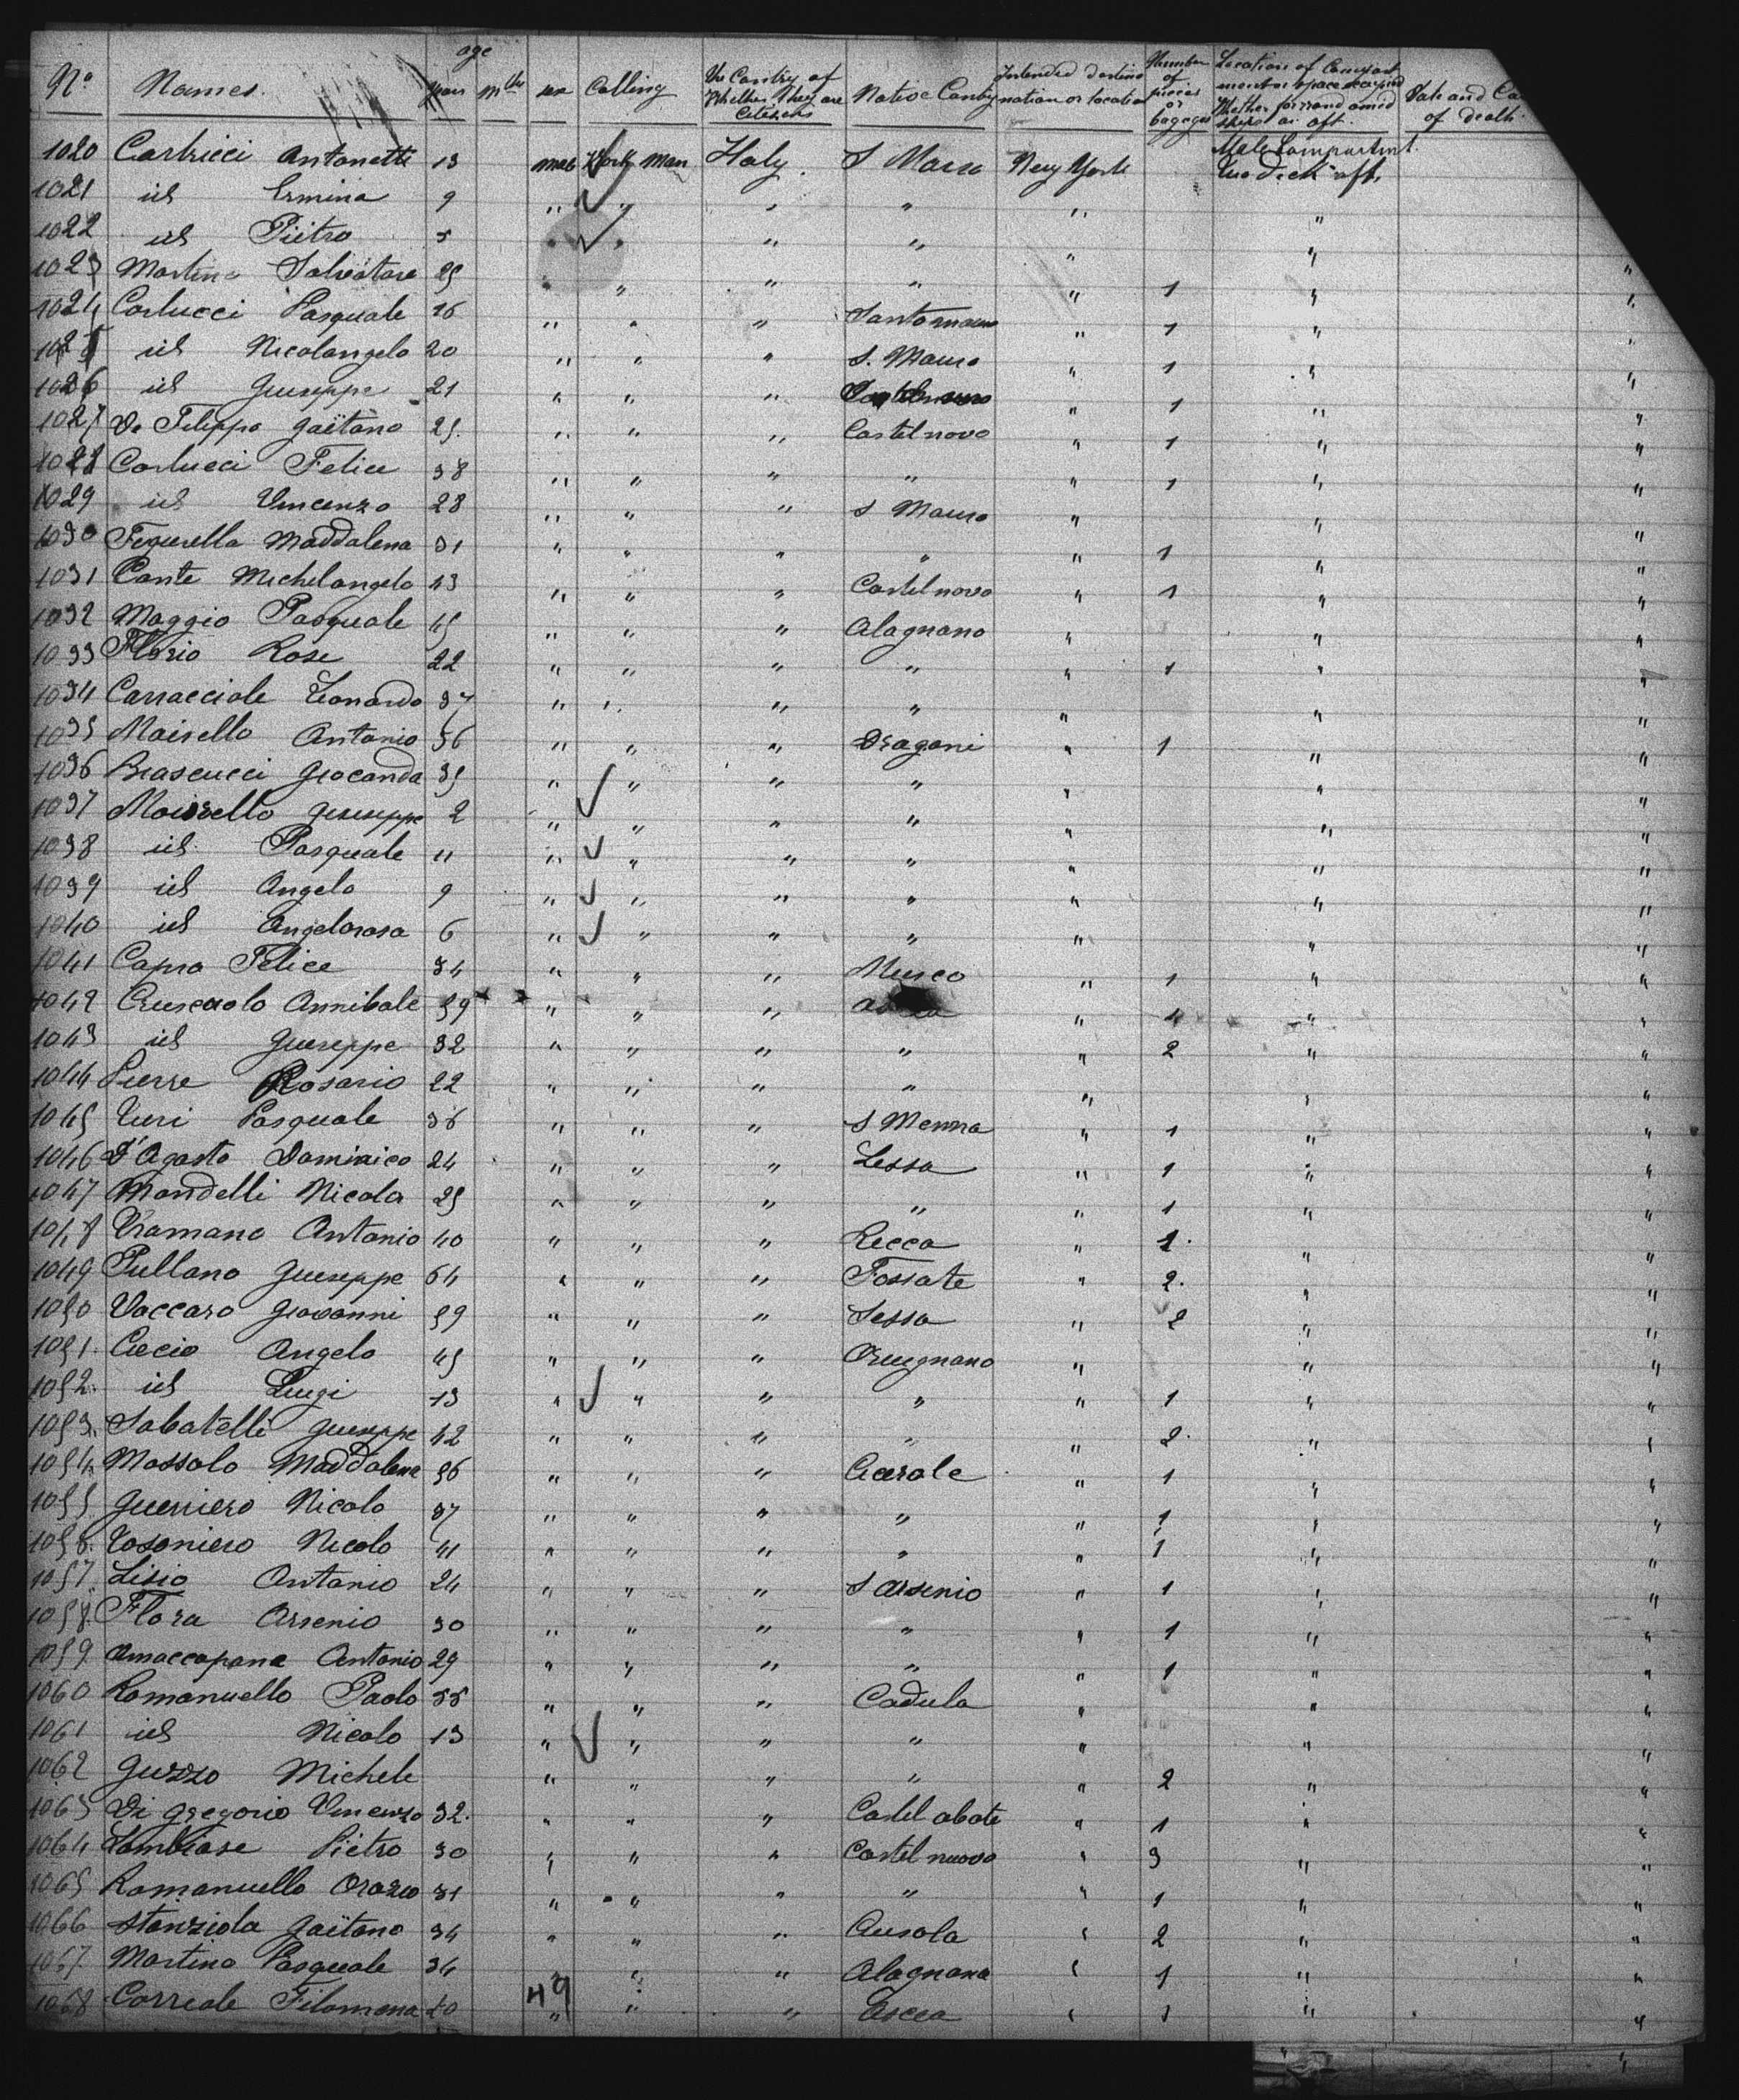 No Names. age years mths sex Calling The Contry of Whether They are Citizens Native Contry Intended destination or location Number of pieces or bagages Location of Compartment or space occupied Whether forward amidships or aft. Date and Ca of death.
1020 Carlucci Antonetti 13 male Work Man Italy. S Mauro New York Male Compartmt. Two deck aft.
1021 id Ermina 9 " " " " " "
1022 id Piétro 5 " " " " " "
1023 Martino Salvatore 25 " " " " " 1 " "
1024 Carlucci Pasquale 16 " " " Santomauro " 1 " "
1025 id Nicolangelo 20 " " " S. Mauro " 1 " "
1026 id Guiseppe 21 " " " " 1 " "
1027 De Filippo Gaïtano 25. " " " Castelnovo " 1 " "
1028 Carlucci Felice 38 " " " " " 1 " "
1029 id Vincenzo 28 " " " S Mauro " " "
1030 Maddalena 31 " " " " " 1 " "
1031 Conte Michelangelo 43 " " " Castelnovo " 1 " "
1032 Maggio Pasquale 45 " " " Alagnano " " "
1033 Florio Rose 22 " " " " " 1 " "
1034 Carracciole Leonardo 37 " " " " " " "
1035 Moirello Antonio 36 " " " Dragoni " 1 " "
1036 Brascucci Gioconda 35 " " " " " " "
1037 Moirello Guiseppe 2 " " " " " " "
1038 id Pasquale 11 " " " " " " "
1039 id Angelo 9 " " " " " " "
1040 id Angelarosa 6 " " " " " " "
1041 Capra Felice 34 " " " Mureo " 1 " "
1042 Annibale 39 " " " " 4 " "
1043 id Guiseppe 32 " " " " " 2 " "
1044 Pierre Rosario 22 " " " " " " "
1045 Turi Pasquale 36 " " " S Menna " 1 " "
1046 D'Agosto Dominico 24 " " " Lessa " 1 " "
1047 Mandelli Nicola 25 " " " " " 1 " "
1048 Tramano Antonio 40 " " " Lecca " 1. " "
1049 Pullano Guiseppe 64 " " " Fossate " 2. " "
1050 Vaccaro Giovanni 39 " " " Sessa " 2 " "
1051. Cecio Angelo 45 " " " Orugnano " " "
1052. id Luigi 13 " " " " " 1 " "
1053. Sabatelli Guiseppe 42 " " " " " 2. " "
1054. Massolo Maddalena 36 " " " " 1 " "
1055. Guerriero Nicolo 37 " " " " " 1 " "
1056. Tosoniero Nicolo 41 " " " " " 1 " "
1057 Lisio Antonio 24 " " " S Arsenio " 1 " "
1058. Flora Arsenio 30 " " " " " 1 " "
1059. Amaccapane Antonio 29 " " " " " 1 " "
1060 Romanuello Paolo 55 " " " Cadula " " "
1061 id Nicolo 13 " " " " " " "
1062 Guzzo Michele " " " " " 2 " "
1063 Di Gregorio Vincenzo 32. " " " Castel abate " 1 " "
1064 Lambiase Piétro 30 " " " Castel nuovo " 3 " "
1065 Romanuello Orazio 31 " " " " " 1 " "
1066 Stanziola Gaïtano 34 " " " Ausola " 2 " "
1067. Martino Pasquale 34 " " " Alagnana " 1 " "
1068 Correale Filomena 40 49 " " " Ascea " 1 " "